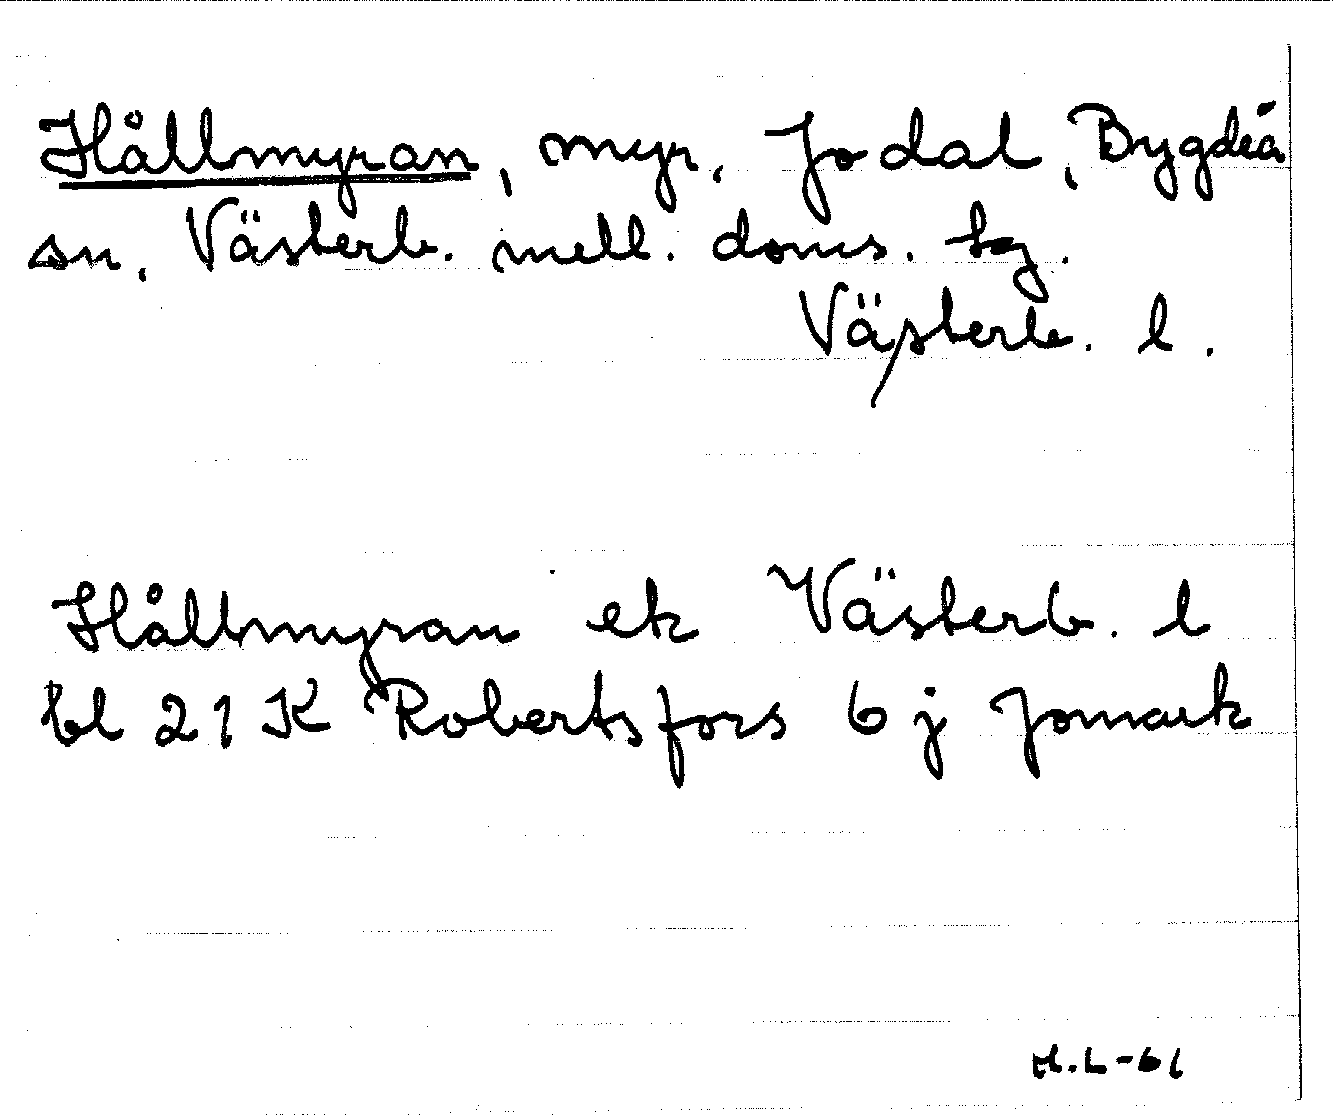 Hållmyran, myr, Jodal, Bygdeå
sn, Västerb. mell. doms. tg.
Västerb. l.
Hållmyran ek Västerb. l
bl 21 K Robertsfors 6 j Jomark
H.L-61